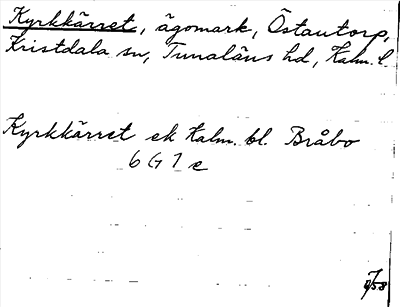 Kyrkkärret, ägomark, Östantorp,
Kristdala sn, Tunaläns hd, Kalm. l.
Kyrkkärret ek Kalm. bl. Bråbo
6 G 7 e